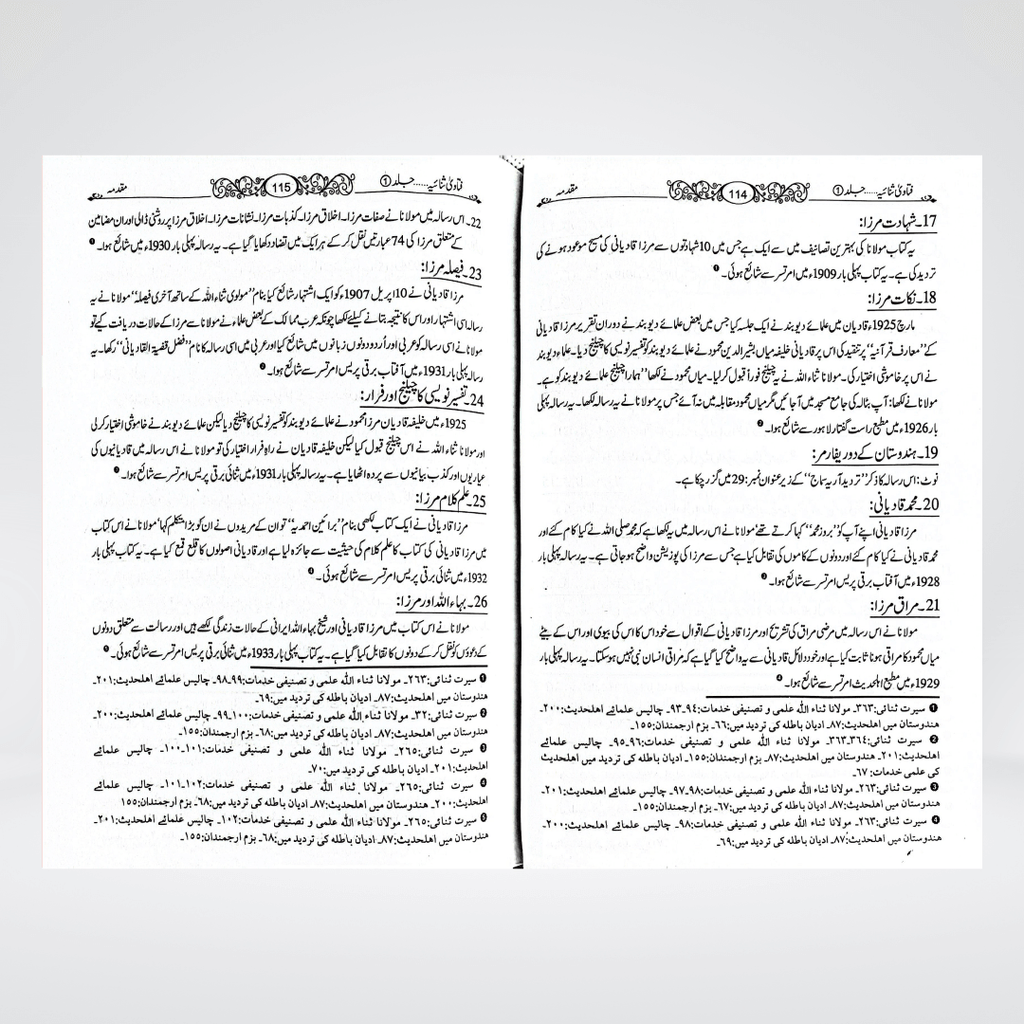 فتاویٰ ثنائیہ.....جلد ①
114
مقدمہ
17۔شہادت مرزا:
یہ کتاب مولانا کی بہترین تصانیف میں سے ایک ہے جس میں 10 شہادتوں سے مرزا قادیانی کی مسیح موعود ہونے کی
تردید کی ہے۔ یہ کتاب پہلی بار 1909ء میں امرتسر سے شائع ہوئی۔❶
18۔نکات مرزا:
مارچ 1925ء قادیان میں علمائے دیوبند نے ایک جلسہ کیا جس میں بعض علمائے دیوبند نے دوران تقریر مرزا قادیانی
کے ”معارف قرآنیہ“ پر تنقید کی اس پر قادیانی خلیفہ میاں بشیر الدین محمود نے علمائے دیوبند کو تفسیر نویسی کا چیلنج دیا۔ علماء دیوبند
نے اس پر خاموشی اختیار کی۔ مولانا ثناء اللہ نے یہ چیلنج فوراً قبول کر لیا۔ میاں محمود نے لکھا ”ہمارا چیلنج علمائے دیوبند کو ہے۔
مولانا نے لکھا: آپ بٹالہ کی جامع مسجد میں آ جائیں مگر میاں محمود مقابلہ میں نہ آئے جس پر مولانا نے یہ رسالہ لکھا۔ یہ رسالہ پہلی
بار 1926ء میں مطبع راست گفتار لاہور سے شائع ہوا۔❷
19۔ہندوستان کے دو ریفارمر:
نوٹ: اس رسالہ کا ذکر ”تردید آریہ سماج“ کے زیر عنوان نمبر: 29 میں گزر چکا ہے۔
20۔محمد قادیانی:
مرزا قادیانی اپنے آپ کو ”بروز محمد“ کہا کرتے تھے مولانا نے اس رسالہ میں یہ لکھا ہے کہ محمد صلی اللہ نے کیا کام کئے اور
محمد قادیانی نے کیا کام کئے اور دونوں کے کاموں کی تقابل کیا ہے جس سے مرزا کی پوزیشن واضح ہو جاتی ہے۔ یہ رسالہ پہلی بار
1928ء میں آفتاب برقی پریس امرتسر سے شائع ہوا۔❸
21۔مراق مرزا:
مولانا نے اس رسالہ میں مرضی مراق کی تشریح اور مرزا قادیانی کے اقوال سے خود اس کا اس کی بیوی اور اس کے بیٹے
میاں محمود کا مراقی ہونا ثابت کیا ہے اور خود دلائل قادیانی سے یہ واضح کیا گیا ہے کہ مراقی انسان نبی نہیں ہو سکتا۔ یہ رسالہ پہلی بار
1929ء میں مطبع اہلحدیث امرتسر سے شائع ہوا۔❹
❶ سیرت ثنائی:۳۶۳۔ مولانا ثناء اللہ علمی و تصنیفی خدمات:۹۴۔۹۳۔ چالیس علمائے اھلحدیث:۲۰۰۔
ھندوستان میں اھلحدیث:۸۷۔ ادیان باطلہ کی تردید میں:۶۶۔ بزم ارجمندان:۱۵۵۔
❷ سیرت ثنائی:۳۶۴۔۳۶۳۔ مولانا ثناء اللہ علمی و تصنیفی خدمات:۹۶۔۹۵۔ چالیس علمائے
اھلحدیث:۲۰۱۔ ھندوستان میں اھلحدیث:۸۷۔ بزم ارجمندان:۱۵۵۔ ادیان باطلہ کی تردید میں اھلحدیث
کی علمی خدمات:۶۷۔
❸ سیرت ثنائی:۲۶۳۔ مولانا ثناء اللہ علمی و تصنیفی خدمات:۹۸۔۹۷۔ چالیس علمائے اھلحدیث:۲۰۱۔
ھندوستان میں اھلحدیث:۸۷۔ ادیان باطلہ کی تردید میں:۶۷۔ بزم ارجمندان:۱۵۵۔
❹ سیرت ثنائی:۲۶۳۔ مولانا ثناء اللہ علمی و تصنیفی خدمات:۹۸۔ چالیس علمائے اھلحدیث:۲۰۰۔
ھندوستان میں اھلحدیث:۸۷۔ ادیان باطلہ کی تردید میں:۶۹۔
فتاویٰ ثنائیہ.....جلد ①
115
مقدمہ
22۔ اس رسالہ میں مولانا نے صفات مرزا۔ اخلاق مرزا۔ کذبات مرزا۔ نشانات مرزا۔ اخلاق مرزا پر روشنی ڈالی اور ان مضامین
کے متعلق مرزا کی 74 عبارتیں نقل کر کے ہر ایک میں تضاد دکھایا گیا ہے۔ یہ رسالہ پہلی بار 1930ء میں شائع ہوا۔❶
23۔فیصلہ مرزا:
مرزا قادیانی نے 10 اپریل 1907ء کو ایک اشتہار شائع کیا بنام ”مولوی ثناء اللہ کے ساتھ آخری فیصلہ“ مولانا نے یہ
رسالہ اسی اشتہار اور اس کا نتیجہ بتانے کیلئے لکھا چونکہ عرب ممالک کے بعض علماء نے مولانا سے مرزا کے حالات دریافت کیے تو
مولانا نے اسی رسالہ کو عربی اور اُردو دونوں زبانوں میں شائع کیا اور عربی میں اسی رسالہ کا نام ”فصل قضیۃ القادیانی“ رکھا۔ یہ
رسالہ پہلی بار 1931ء میں آفتاب برقی پریس امرتسر سے شائع ہوا۔❷
24۔تفسیر نویسی کا چیلنج اور فرار:
1925ء میں خلیفہ قادیان مرزا محمود نے علمائے دیوبند کو تفسیر نویسی کا چیلنج دیا لیکن علمائے دیوبند نے خاموشی اختیار کر لی
اور مولانا ثناء اللہ نے اس چیلنج قبول کیا لیکن خلیفہ قادیان نے راہ فرار اختیار کی تو مولانا نے اس رسالہ میں قادیانیوں کی
عیاریوں اور کذب بیانیوں سے پردہ اٹھایا ہے۔ یہ رسالہ پہلی بار 1931ء میں ثنائی برقی پریس امرتسر سے شائع ہوا۔❸
25۔علم کلام مرزا:
مرزا قادیانی نے ایک کتاب لکھی بنام ”براہین احمدیہ“ تو ان کے مریدوں نے ان کو بڑا متکلم کہا‘ مولانا نے اس کتاب
میں مرزا قادیانی کی کتاب کا علم کلام کی حیثیت سے جائزہ لیا ہے اور قادیانی اصولوں کا قلع قمع کیا ہے۔ یہ کتاب پہلی بار
1932ء میں ثنائی برقی پریس امرتسر سے شائع ہوئی۔❹
26۔بہاء اللہ اور مرزا:
مولانا نے اس کتاب میں مرزا قادیانی اور شیخ بہاء اللہ ایرانی کے حالات زندگی لکھے ہیں اور رسالت سے متعلق دونوں
کے دعوؤں کو نقل کر کے دونوں کا تقابل کیا گیا ہے۔ یہ کتاب پہلی بار 1933ء میں ثنائی برقی پریس امرتسر سے شائع ہوئی۔❺
❶ سیرت ثنائی:۲۶۳۔ مولانا ثناء اللہ علمی و تصنیفی خدمات:۹۹۔۹۸۔ چالیس علمائے اھلحدیث:۲۰۱۔
ھندوستان میں اھلحدیث:۸۷۔ ادیان باطلہ کی تردید میں:۶۹۔
❷ سیرت ثنائی:۳۲۔ مولانا ثناء اللہ علمی و تصنیفی خدمات:۱۰۰۔۹۹۔ چالیس علمائے اھلحدیث:۲۰۰۔
ھندوستان میں اھلحدیث:۸۷۔ ادیان باطلہ کی تردید میں:۶۸۔ بزم ارجمندان:۱۵۵۔
❸ سیرت ثنائی:۲۶۵۔ مولانا ثناء اللہ علمی و تصنیفی خدمات:۱۰۱۔۱۰۰۔ چالیس علمائے
اھلحدیث:۲۰۱۔ ادیان باطلہ کی تردید میں:۷۰۔
❹ سیرت ثنائی:۲۶۵۔ مولانا ثناء اللہ علمی و تصنیفی خدمات:۱۰۲۔۱۰۱۔ چالیس علمائے
اھلحدیث:۲۰۰۔ ھندوستان میں اھلحدیث:۸۷۔ ادیان باطلہ کی تردید میں:۶۸۔ بزم ارجمندان:۱۵۵
❺ سیرت ثنائی:۲۶۵۔ مولانا ثناء اللہ علمی و تصنیفی خدمات:۱۰۲۔ چالیس علمائے اھلحدیث:۲۰۱۔
ھندوستان میں اھلحدیث:۸۷۔ ادیان باطلہ کی تردید میں:۶۸۔ بزم ارجمندان:۱۵۵۔